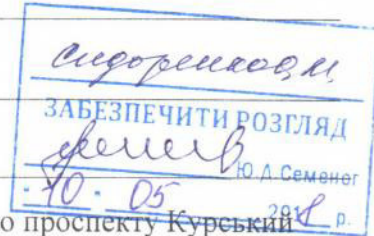 Сидоренко О.М.
ЗАБЕЗПЕЧИТИ РОЗГЛЯД
Ю.А.Семеног
10 05 2018 р.
о проспекту Курський